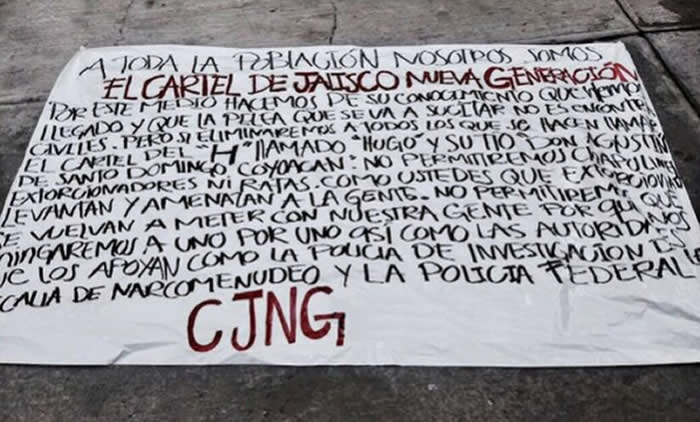 A TODA LA POBLACIÓN NOSOTROS SOMOS
EL CARTEL DE JALISCO NUEVA GENERACIÓN
POR ESTE MEDIO HACEMOS DE SU CONOCIMIENTO QUE HEMOS
LLEGADO Y QUE LA PELEA QUE SE VA A SUCITAR NO ES
CIVILES. PERO SI ELIMINAREMOS A TODOS LOS QUE SE HACEN LLAMAR
EL CARTEL DEL "H" LLAMADO "HUGO" Y SU TIO "DON AGUSTIN
DE SANTO DOMINGO, COYOACAN: NO PERMITIREMOS
EXTORCIONADORES NI RATAS. COMO USTEDES QUE
LEVANTAN Y AMENAZAN A LA GENTE. NO PERMITIREMOS QUE
SE VUELVAN A METER CON NUESTRA GENTE POR QUE NOS
A UNO POR UNO ASÍ COMO LAS
LOS APOYAN COMO LA POLICIA DE INVESTIGACION
DE NARCOMENUDEO Y LA POLICIA FEDERAL
CJNG